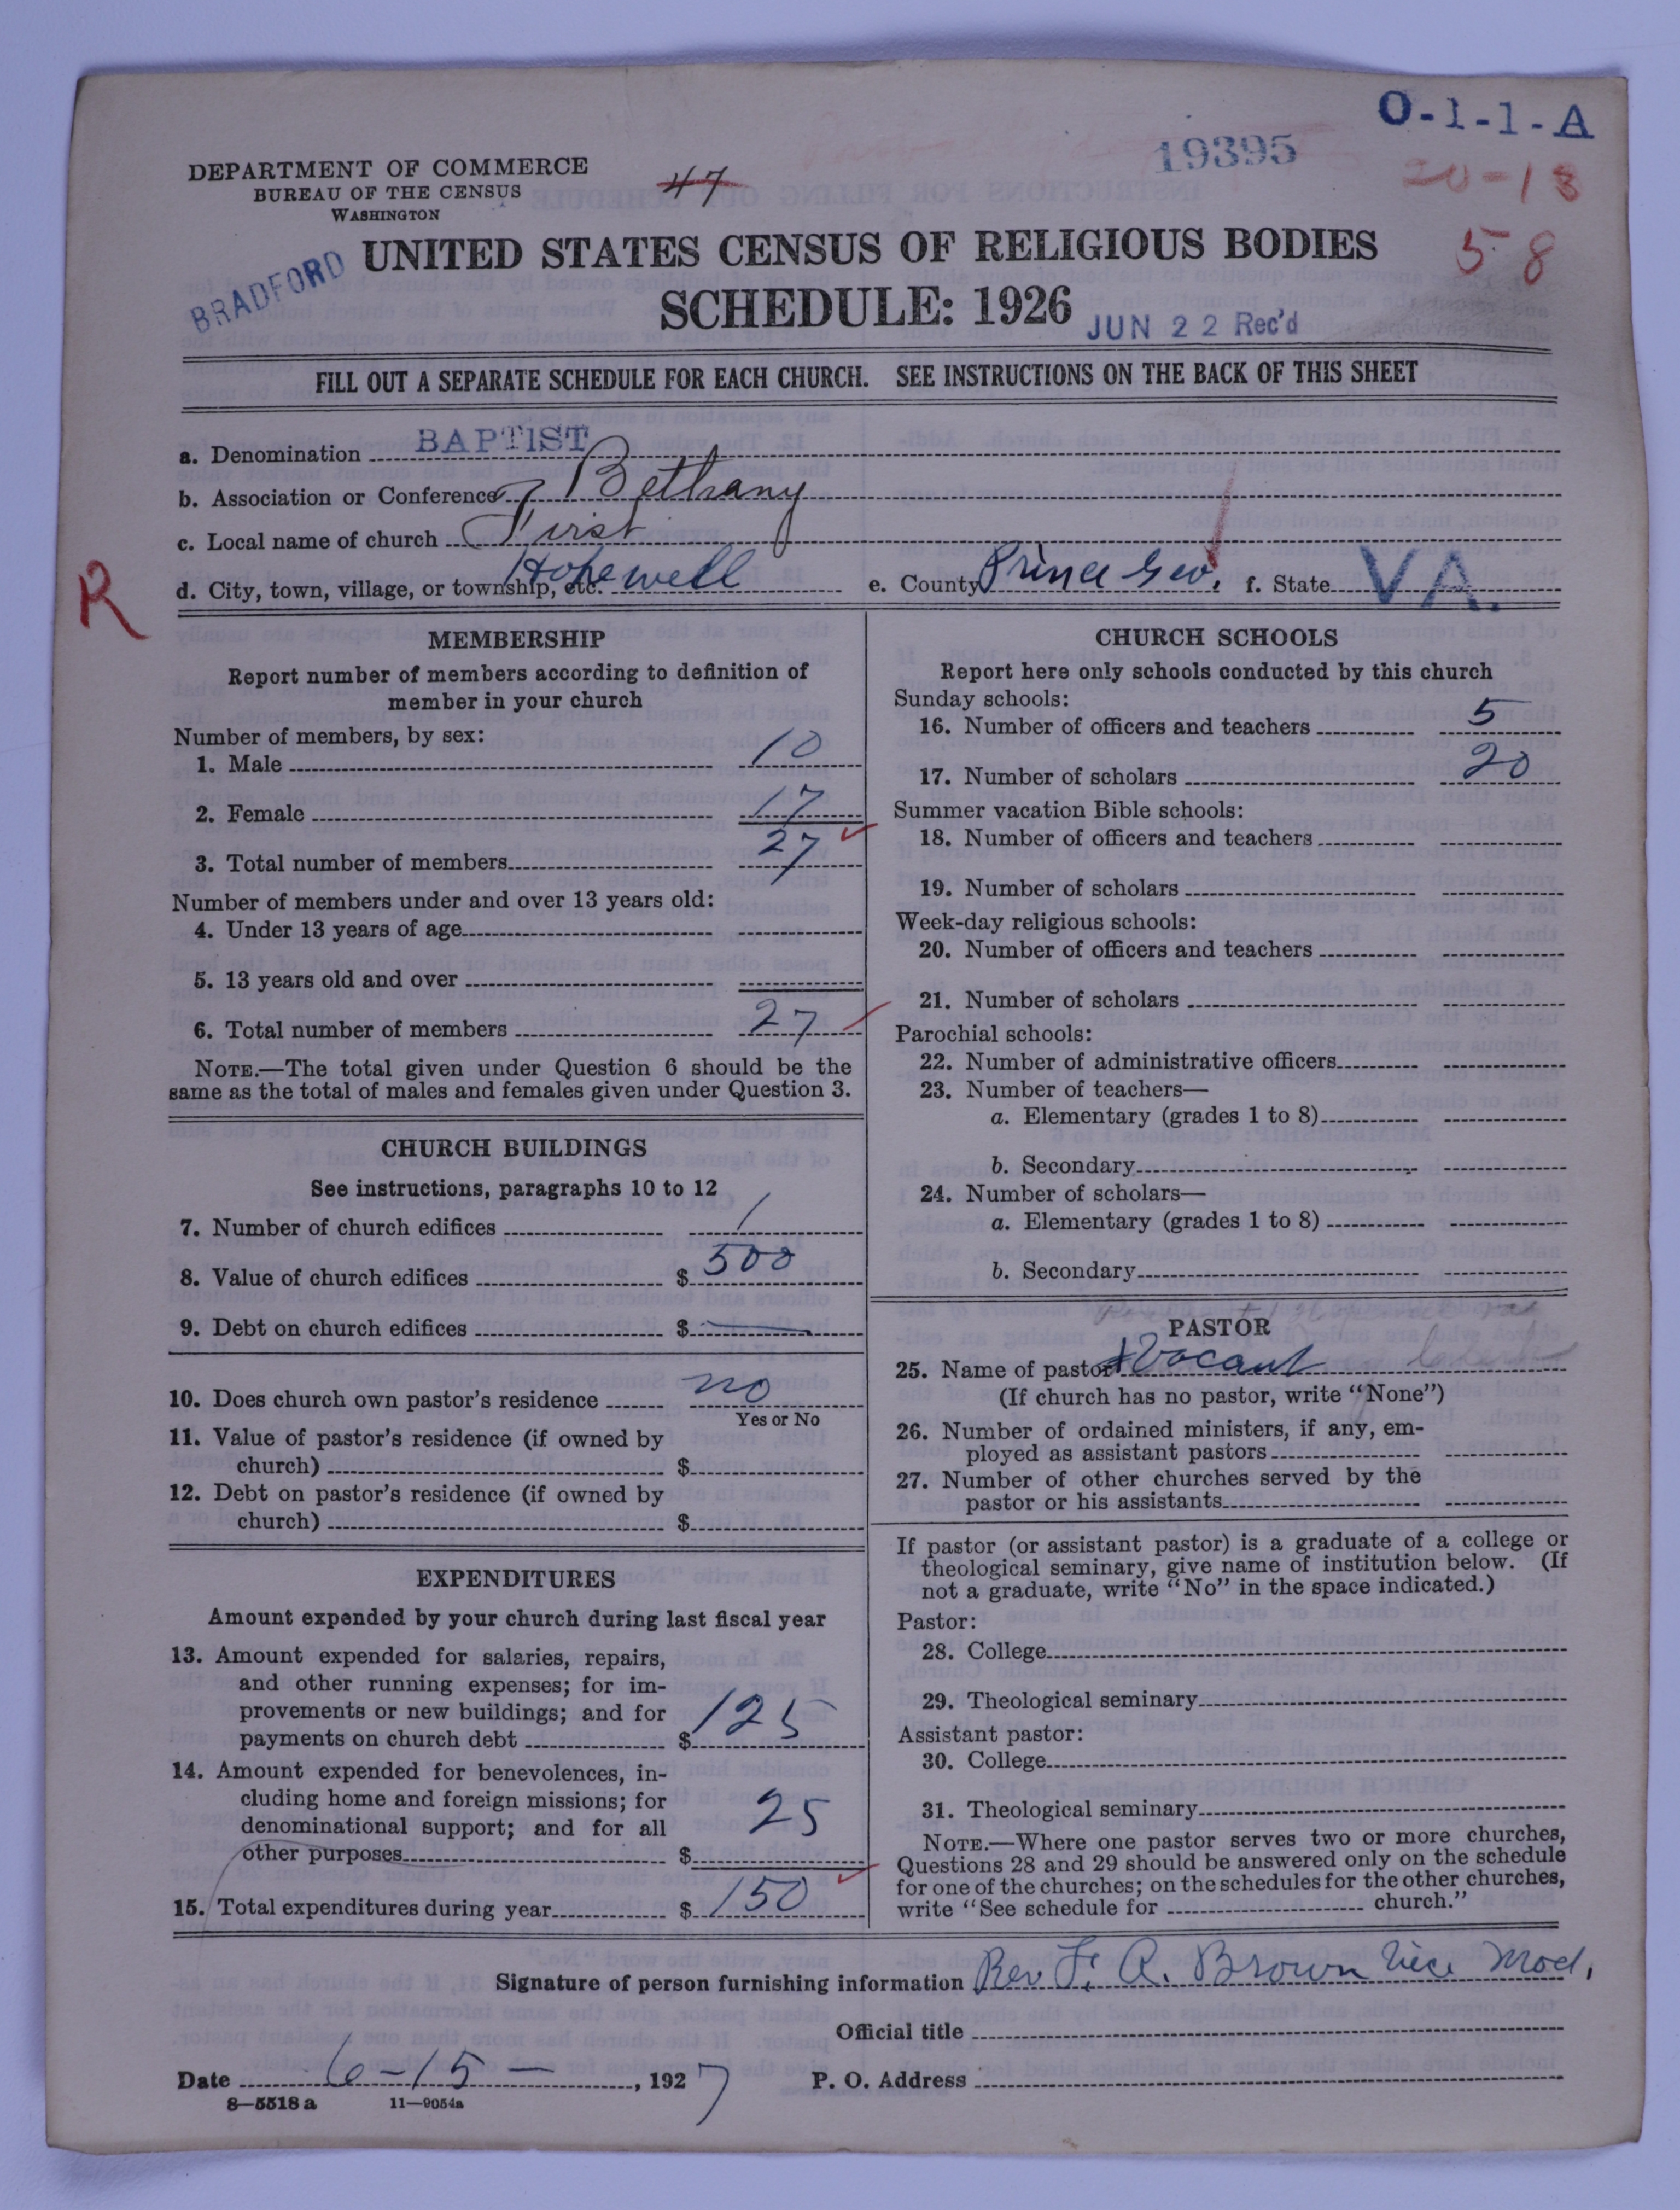 O-1-1-A
19395
DEPARTMENT OF COMMERCE
BUREAU OF THE CENSUS
WASHINGTON
47
20-13
58
BRADFORD
UNITED STATES CENSUS OF RELIGIOUS BODIES
SCHEDULE: 1926
JUN 22 Rec'd
FILL OUT A SEPARATE SCHEDULE FOR EACH CHURCH. SEE INSTRUCTIONS ON THE BACK OF THIS SHEET
a. Denomination BAPTIST
b. Association or Conference Bethany
c. Local name of church First
d. City, town, village, or township, etc. Hopewell e. County Prince Geo. f. State VA.
R
MEMBERSHIP
Report number of members according to definition of
member in your church
Number of members, by sex:
1. Male 10
2. Female 17
3. Total number of members 27
Number of members under and over 13 years old:
4. Under 13 years of age
5. 13 years old and over
6. Total number of members 27
NOTE.—The total given under Question 6 should be the
same as the total of males and females given under Question 3.
CHURCH BUILDINGS
See instructions, paragraphs 10 to 12
7. Number of church edifices 1
8. Value of church edifices $ 500
9. Debt on church edifices $ —
10. Does church own pastor's residence no
Yes or No
11. Value of pastor's residence (if owned by
church) $
12. Debt on pastor's residence (if owned by
church) $
EXPENDITURES
Amount expended by your church during last fiscal year
13. Amount expended for salaries, repairs,
and other running expenses; for im-
provements or new buildings; and for
payments on church debt $ 125
14. Amount expended for benevolences, in-
cluding home and foreign missions; for
denominational support; and for all
other purposes $ 25
15. Total expenditures during year $ 150
CHURCH SCHOOLS
Report here only schools conducted by this church
Sunday schools:
16. Number of officers and teachers 5
17. Number of scholars 20
Summer vacation Bible schools:
18. Number of officers and teachers
19. Number of scholars
Week-day religious schools:
20. Number of officers and teachers
21. Number of scholars
Parochial schools:
22. Number of administrative officers
23. Number of teachers—
a. Elementary (grades 1 to 8)
b. Secondary
24. Number of scholars—
a. Elementary (grades 1 to 8)
b. Secondary
PASTOR
25. Name of pastor Vacant
(If church has no pastor, write "None")
26. Number of ordained ministers, if any, em-
ployed as assistant pastors
27. Number of other churches served by the
pastor or his assistants
If pastor (or assistant pastor) is a graduate of a college or
theological seminary, give name of institution below. (If
not a graduate, write "No" in the space indicated.)
Pastor:
28. College
29. Theological seminary
Assistant pastor:
30. College
31. Theological seminary
NOTE.—Where one pastor serves two or more churches,
Questions 28 and 29 should be answered only on the schedule
for one of the churches; on the schedules for the other churches,
write "See schedule for church."
Signature of person furnishing information Rev. F. A. Brown Vice Mod.
Official title
Date 6-15 —, 1927 P. O. Address
8—5518 a 11—9054a